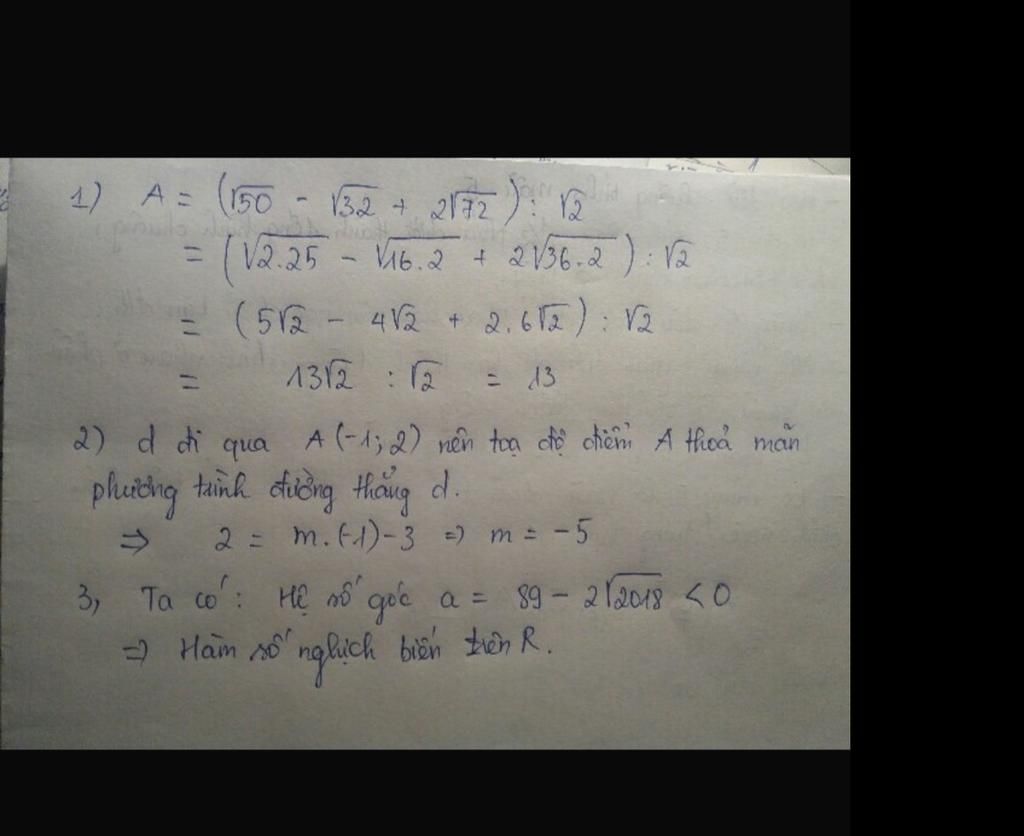 1) A = (√50 - √32 + 2√72) : √2
= (√2.25 - √16.2 + 2√36.2) : √2
= (5√2 - 4√2 + 2.6√2) : √2
= 13√2 : √2 = 13
2) d đi qua A(-1; 2) nên toạ độ điểm A thoả mãn
phương trình đường thẳng d.
⇒ 2 = m.(-1)-3 ⇒ m = -5
3, Ta có: Hệ số góc a = 89 - 2√2018 < 0
⇒ Hàm số nghịch biến trên R.